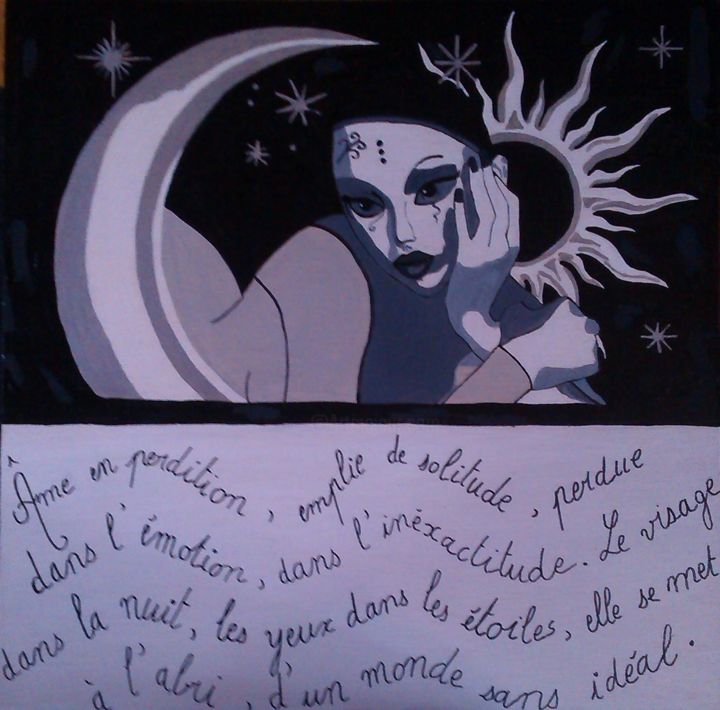 Âme en perdition, emplie de solitude, perdue
dans l'émotion, dans l'inéxactitude. Le visage
dans la nuit, les yeux dans les étoiles, elle se met
à l'abri, d'un monde sans idéal.